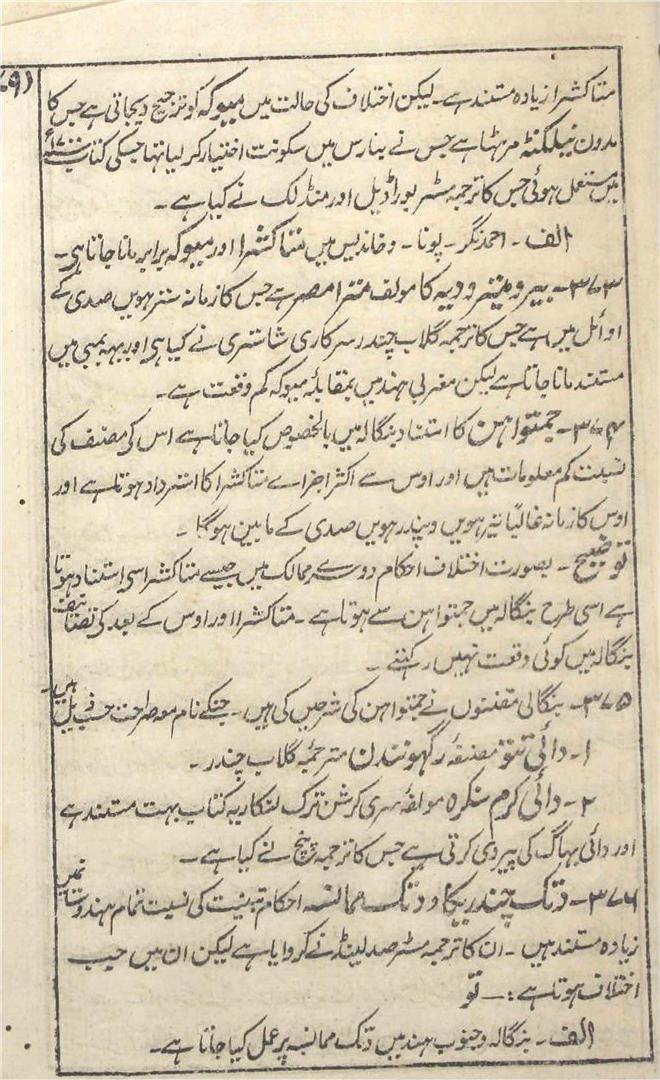 (۶۹
متاکشرا زیادہ مستند ہے۔ لیکن اختلاف کی حالت میں میوکہ کو ترجیح دیجاتی ہے جس کا
مدون نیلکنٹہ مرہٹا ہے جس نے بنارس میں سکونت اختیار کر لیا تہا جسکی کتاب ۱۷۰۰ئہ
میں مستعمل ہوئی جس کا ترجمہ مسٹر بوراڈیل اور منڈلک نے کیا ہے۔
الف۔ احمد نگر۔ پونا۔ و خاندیس میں متاکشرا اور میوکہ برابر مانا جاتا ہی۔
۳۷۳۔ بیرومیترودیہ کا مولف مترا مصر ہے جس کا زمانہ سترہویں صدی کے
اوائل میں ہے جس کا ترجمہ گلاب چندر سرکاری شاستری نے کیا ہی اور یہہ بمبی میں
مستند مانا جاتا ہے لیکن مغربی ہند میں بمقابلہ میوکہ کم وقعت ہے۔
۳۷۴۔ جمتواہن کا استناد بنگالہ میں بالخصوص کیا جاتا ہے اس کی مصنف کی
نسبت کم معلومات ہیں اور اوس سے اکثر اجزاے متاکشرا کا استرداد ہوتا ہے اور
اوس کا زمانہ غالباً تیرہویں و پندرہویں صدی کے مابین ہوگا۔
توضیح۔ بصورت اختلاف احکام دوسرے ممالک میں جیسے متاکشرا سی استناد ہوتا
ہے اسی طرح بنگالہ میں جمتواہن سے ہوتا ہے۔ متاکشرا اور اوس کے بعد کی تصانیف
بنگالہ میں کوئی وقعت نہیں رکہتے۔
۳۷۵۔ بنگالی مقننوں نے جمتواہن کی شرحیں کی ہیں۔ جنکے نام معہ صراحت حسب ذیل ہیں۔
۱۔ دائی تتو مصنفہ رگہونندن مترجمہ گلاب چندر۔
۲۔ دائی کرم سنگرہ مولفہ سری کرشن ترک لنکار یہ کتاب بہت مستند ہے
اور دائی بہاگ کی پیروی کرتی ہے جس کا ترجمہ ینچ نے کیا ہے۔
۳۷۶۔ دتک چندریکا و دتک ممانسہ احکام تبنیت کی نسبت تمام ہندوستان میں
زیادہ مستند ہیں۔ ان کا ترجمہ مسٹر صدلینڈ نے کروایا ہے لیکن ان میں جب
اختلاف ہوتا ہے :— تو
الف۔ بنگالہ و جنوب ہند میں دتک ممانسہ پر عمل کیا جاتا ہے۔